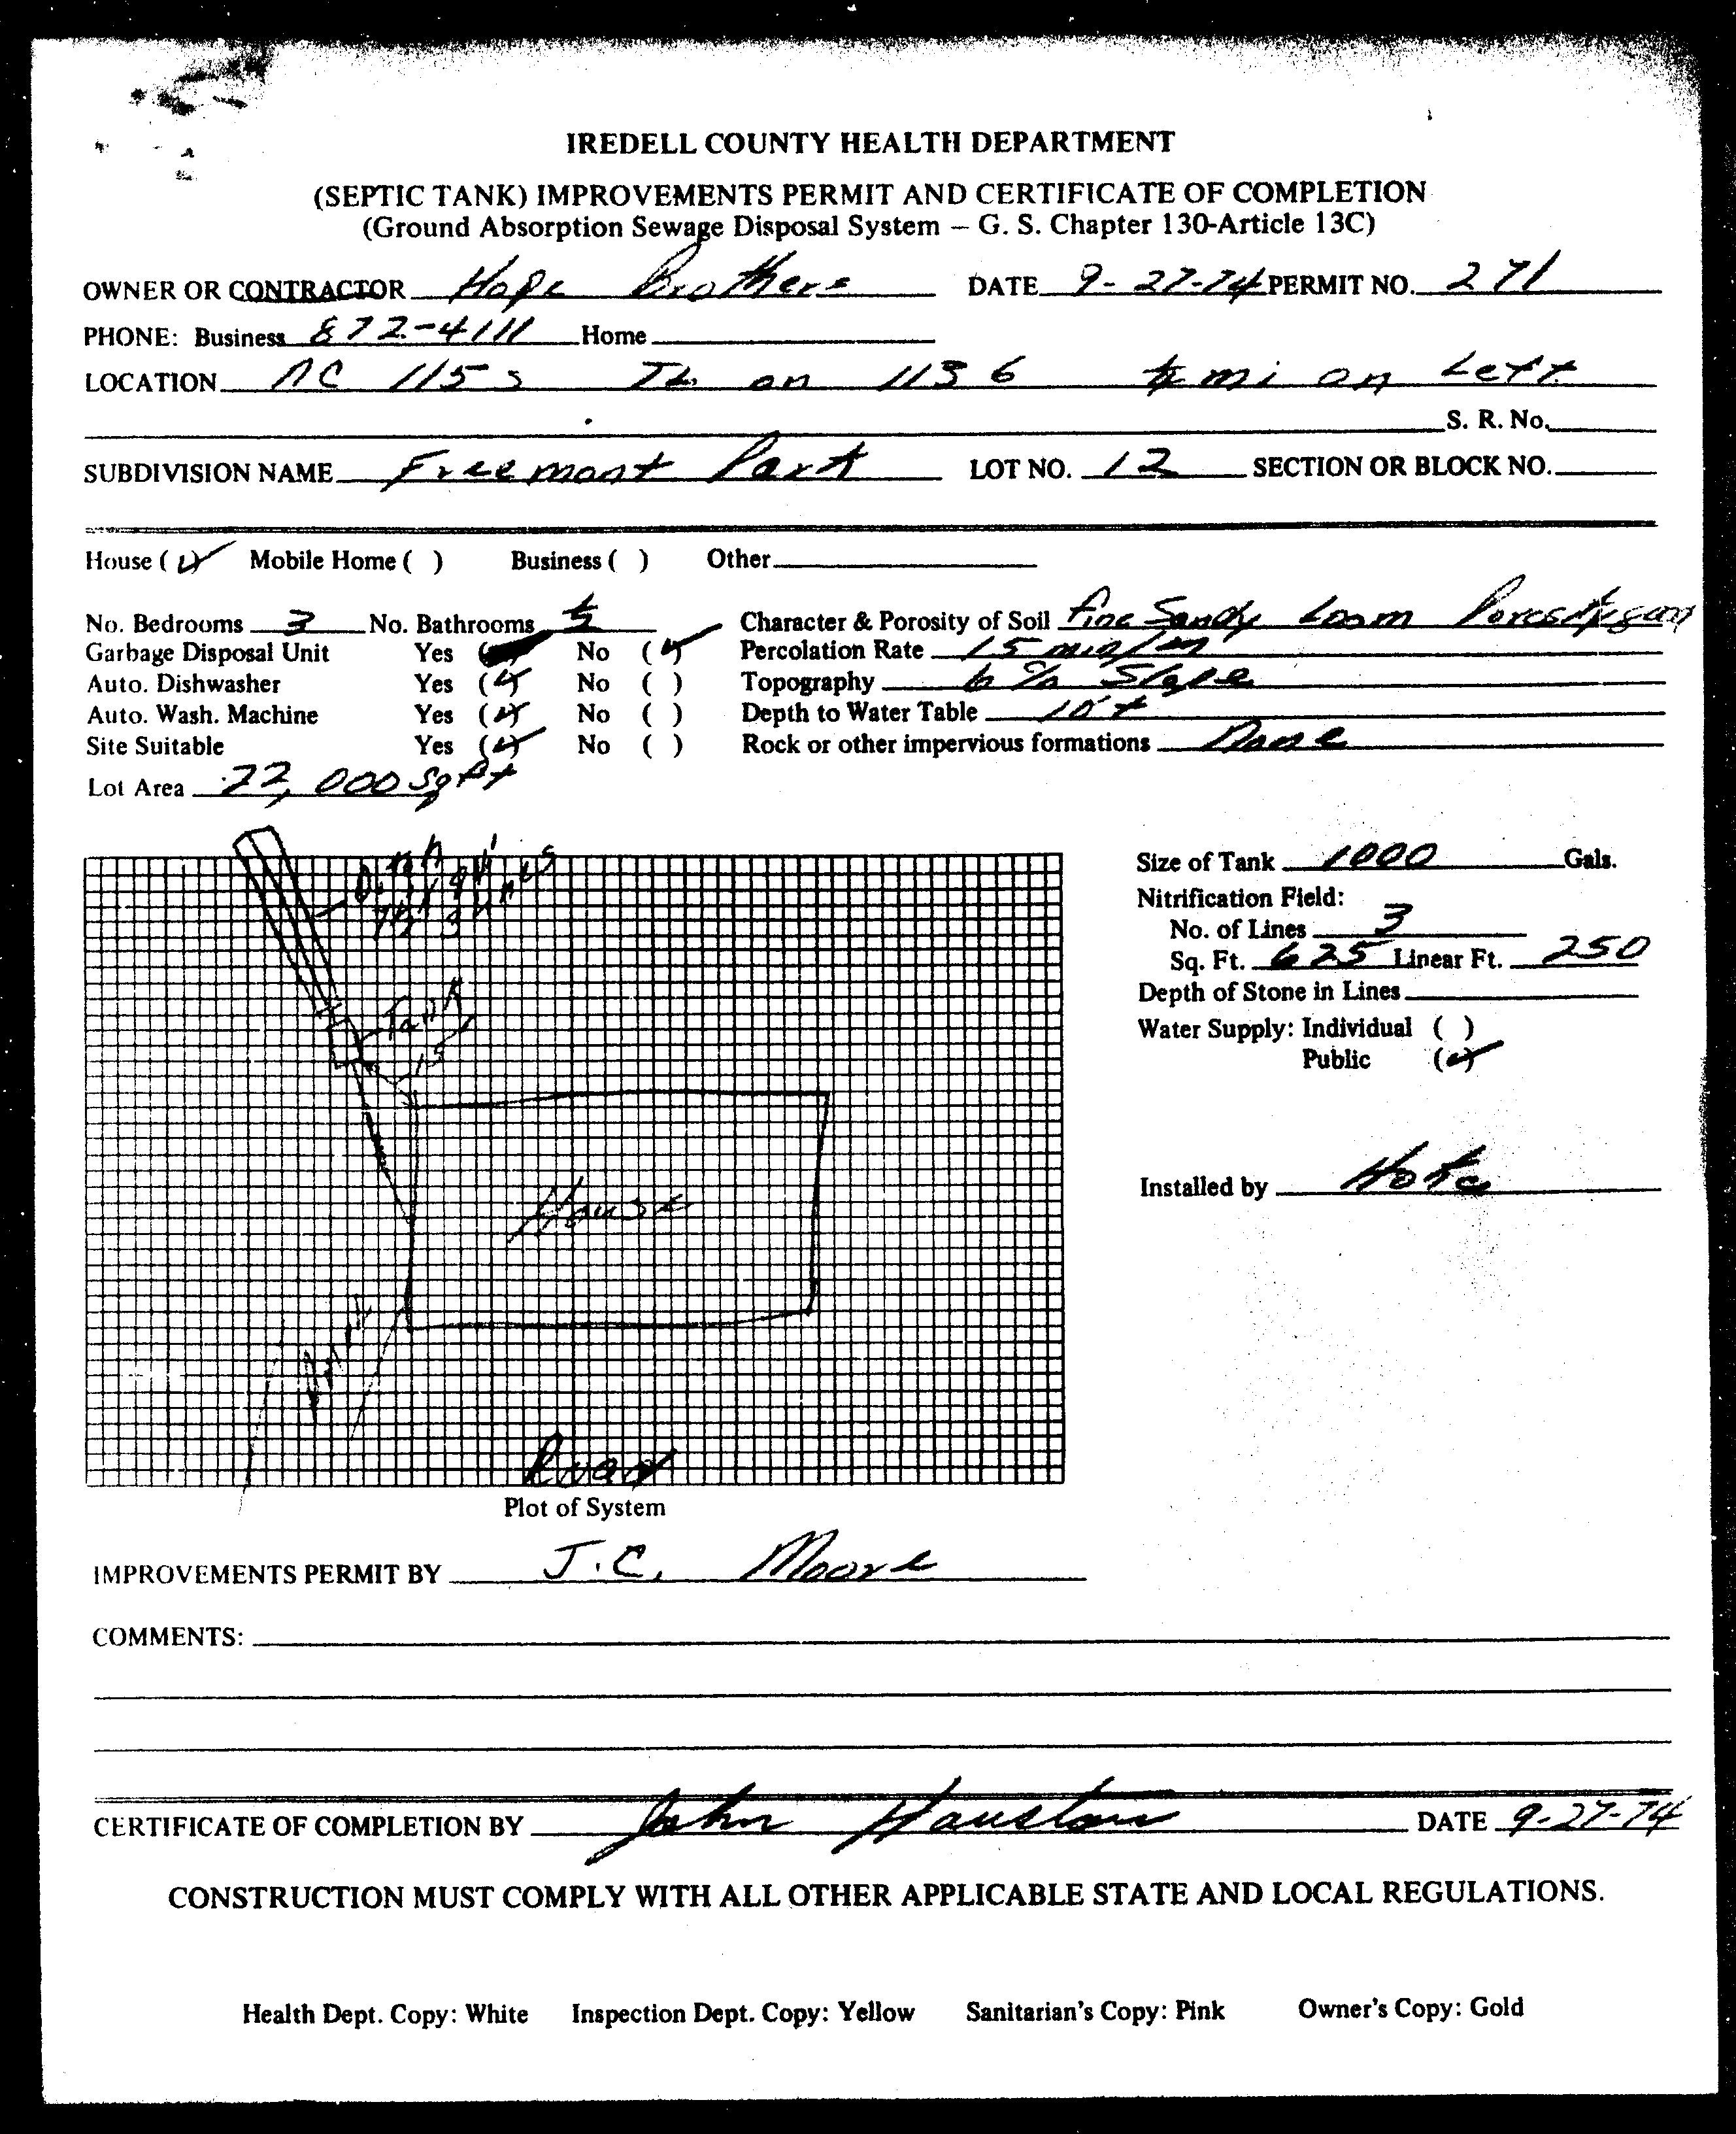 IREDELL COUNTY HEALTH DEPARTMENT
(SEPTIC TANK) IMPROVEMENTS PERMIT AND CERTIFICATE OF COMPLETION
(Ground Absorption Sewage Disposal System – G. S. Chapter 130-Article 13C)
OWNER OR CONTRACTOR Hope Brothers DATE 9-27-74 PERMIT NO. 271
PHONE: Business 872-4111 Home
LOCATION NC 115 S TL on 1136 mi on Left
S. R. No.
SUBDIVISION NAME Freemont Park LOT NO. 12 SECTION OR BLOCK NO.
House (✓) Mobile Home ( ) Business ( ) Other
No. Bedrooms 3 No. Bathrooms Character & Porosity of Soil Fine Sandy Loam Porosity good
Garbage Disposal Unit Yes ( ) No (✓) Percolation Rate 15 min/in
Auto. Dishwasher Yes (✓) No ( ) Topography 6 % Slope
Auto. Wash. Machine Yes (✓) No ( ) Depth to Water Table 10'+
Site Suitable Yes (✓) No ( ) Rock or other impervious formations None
Lot Area 22,000 Sq Ft
Size of Tank 1000 Gals.
Nitrification Field:
No. of Lines 3
Sq. Ft. 625 Linear Ft. 250
Depth of Stone in Lines
Water Supply: Individual ( )
Public (✓)
Installed by
Tank
15
House
Road
Plot of System
IMPROVEMENTS PERMIT BY J.C. Moore
COMMENTS:
CERTIFICATE OF COMPLETION BY John Houston DATE 9-27-74
CONSTRUCTION MUST COMPLY WITH ALL OTHER APPLICABLE STATE AND LOCAL REGULATIONS.
Health Dept. Copy: White Inspection Dept. Copy: Yellow Sanitarian's Copy: Pink Owner's Copy: Gold